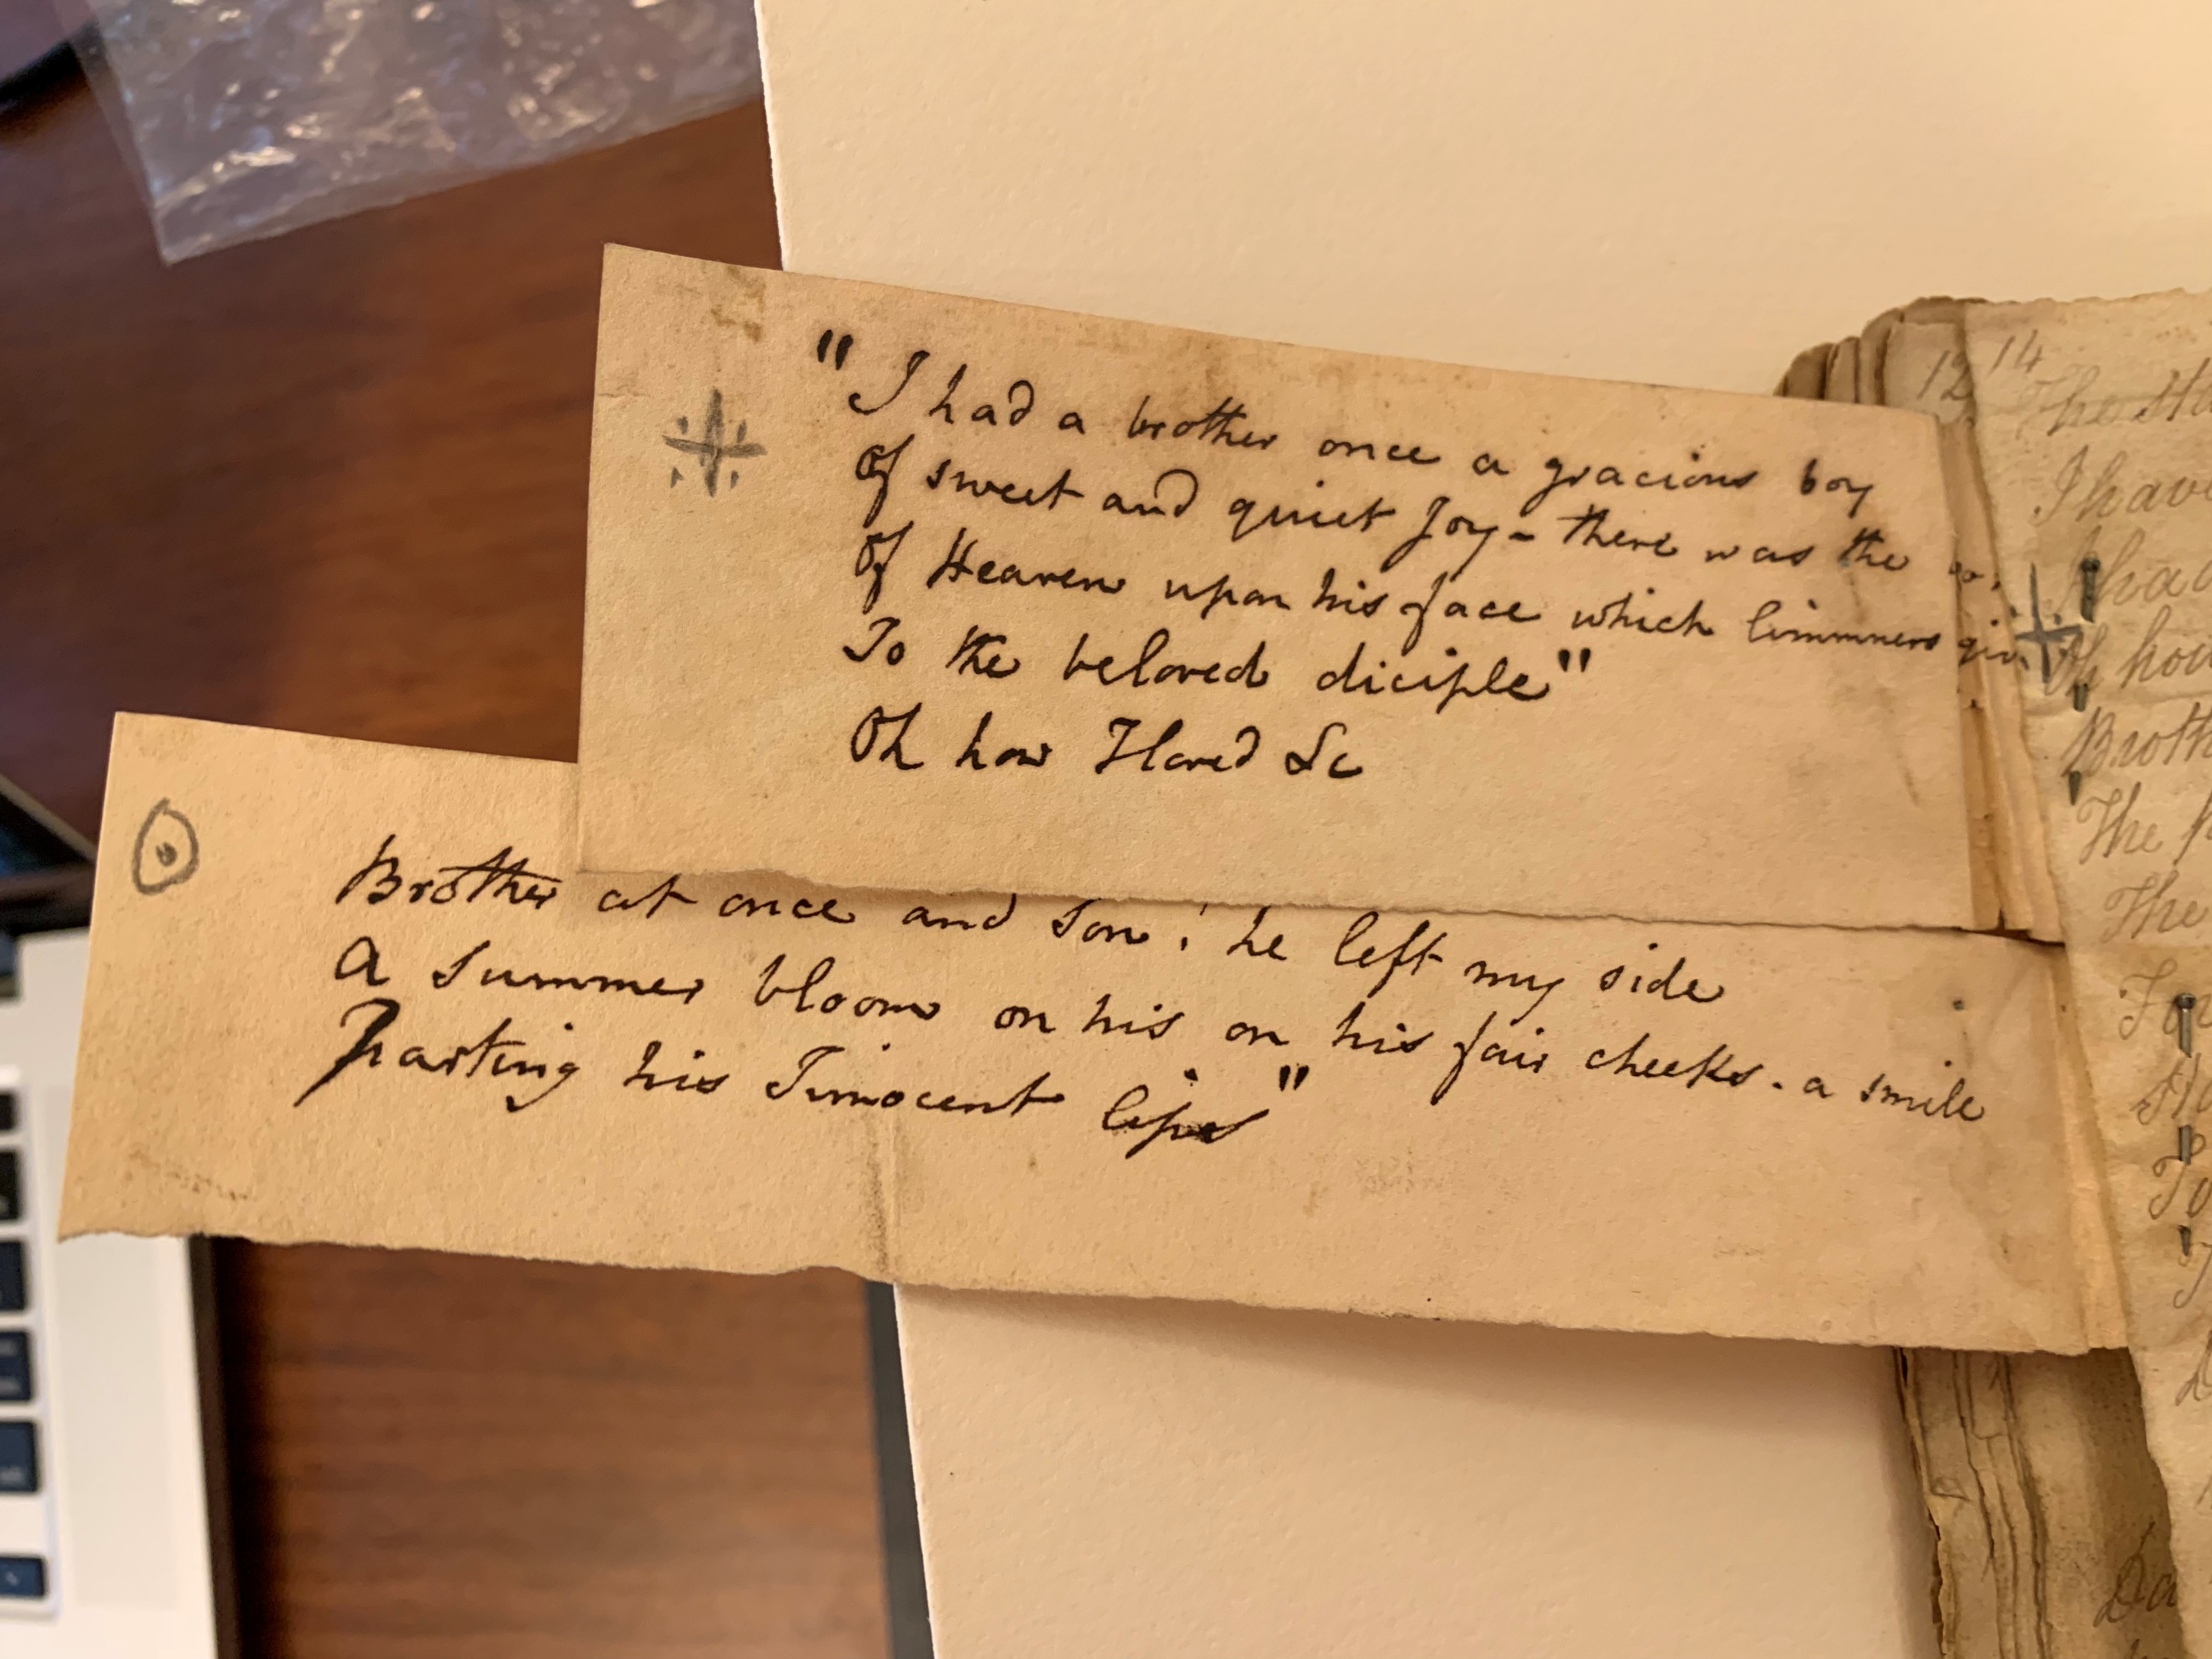 "I had a brother once a gracious boy
Of sweet and quiet Joy - there was the
Of Heaven upon his face which limmners
To the beloved diciple"
Oh how I loved &c
Brother at once and son! he left my side
A summer bloom on his on his fair cheeks - a smile
Parting his Innocent lips"
12 14
The
I have
I had
Oh how
Broth
The
The